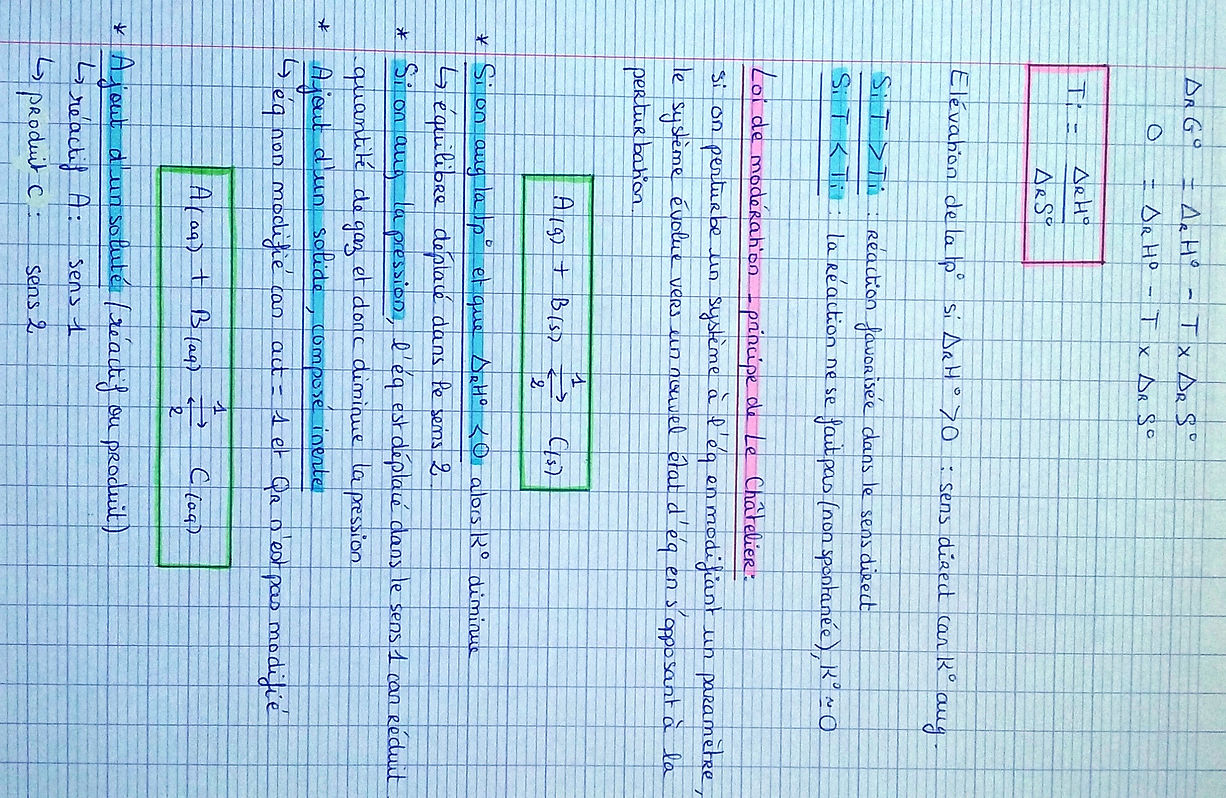 ΔRG° = ΔRH° - T x ΔRS°
0 = ΔRH° - T x ΔRS°
Ti = ΔRH° / ΔRS°
Elévation de la t° si ΔRH° > 0 : sens direct car K° aug.
Si T > Ti : réaction favorisée dans le sens direct
Si T < Ti : la réaction ne se fait pas (non spontanée), K° ≃ 0
Loi de modération - principe de Le Châtelier :
si on perturbe un système à l'éq en modifiant un paramètre,
le système évolue vers un nouvel état d'éq en s'opposant à la
perturbation.
A(g) + B(s) 1 ⇄ 2 C(s)
* Si on aug la t° et que ΔRH° < 0 alors K° diminue
↳ équilibre déplacé dans le sens 2.
* Si on aug la pression, l'éq est déplacé dans le sens 1 car réduit
quantité de gaz et donc diminue la pression
* Ajout d'un solide, composé inerte
↳ éq non modifié car act = 1 et QR n'est pas modifié
A(aq) + B(aq) 1 ⇄ 2 C(aq)
* Ajout d'un soluté (réactif ou produit)
↳ réactif A : sens 1
↳ produit C : sens 2